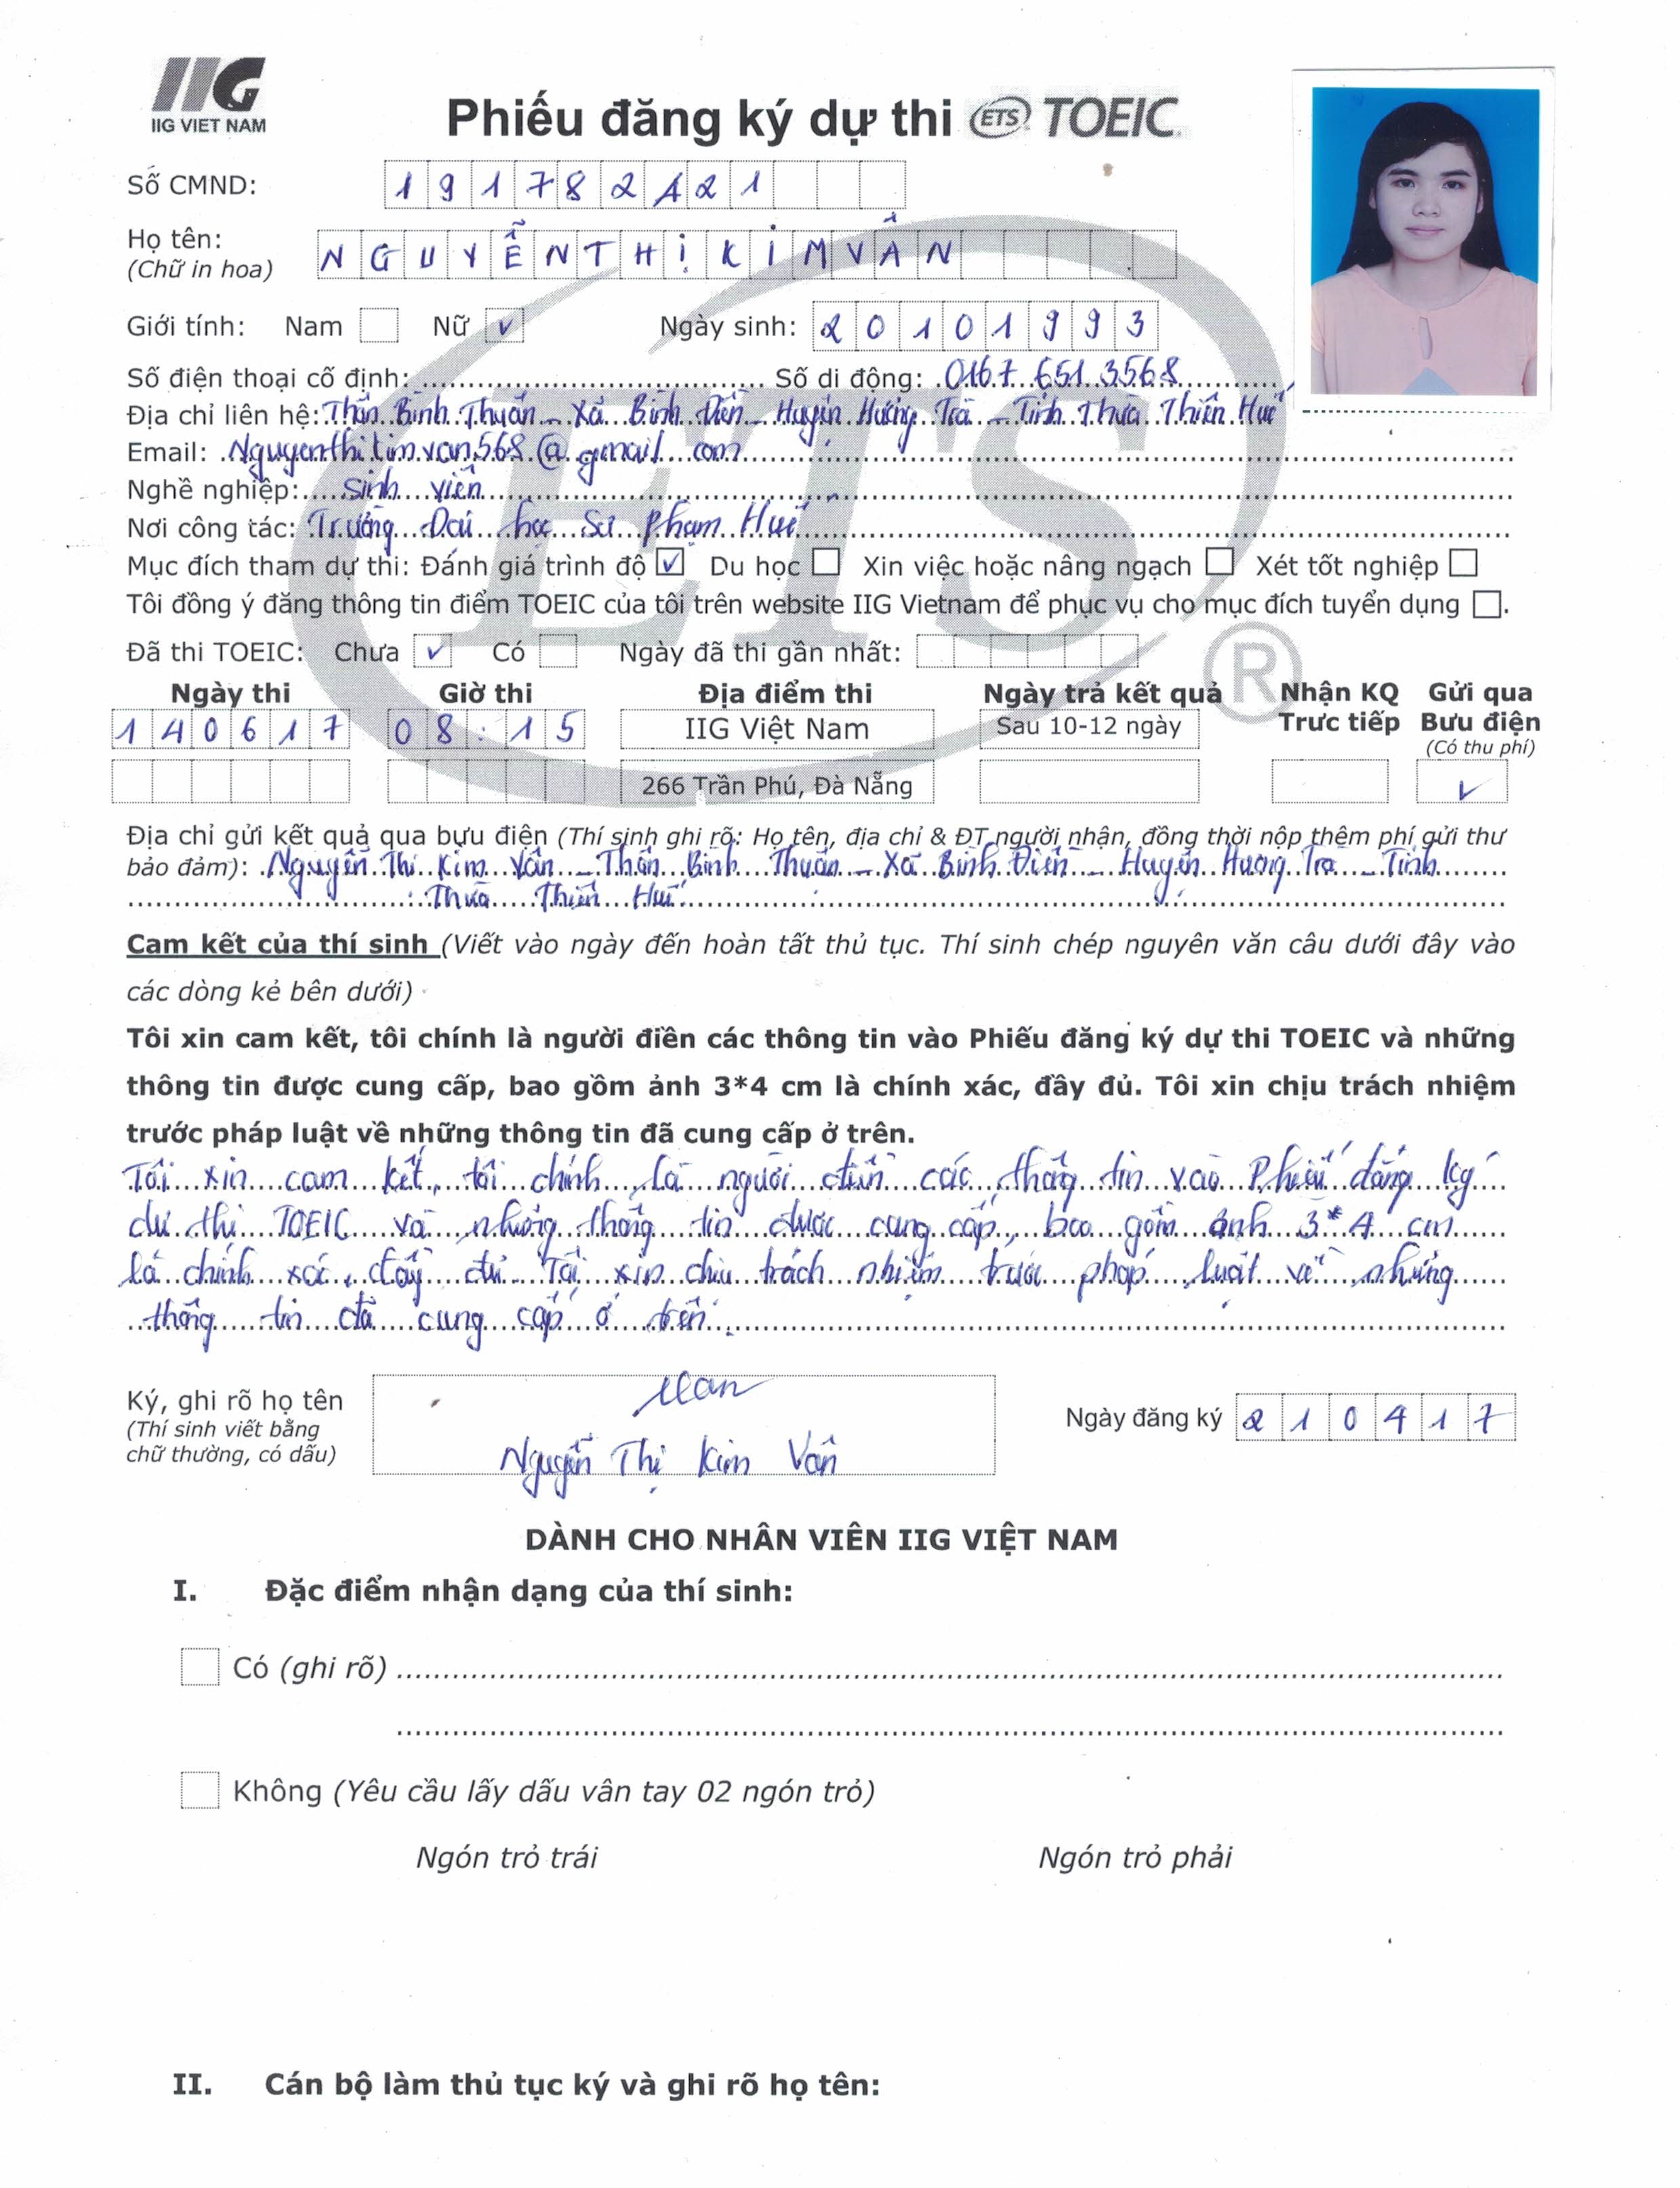 IIG
IIG VIET NAM
Phiếu đăng ký dự thi ETS TOEIC
Số CMND: 191782421
Họ tên: NGUYỄN THỊ KIM VÂN
(Chữ in hoa)
Giới tính: Nam Nữ ✓ Ngày sinh: 20101993
Số điện thoại cố định: Số di động: 0167 651 3568
Địa chỉ liên hệ: Thôn Bình Thuận - Xã Bình Điền - Huyện Hương Trà - Tỉnh Thừa Thiên Huế
Email: Nguyenthikimvan568@gmail.com
Nghề nghiệp: Sinh viên
Nơi công tác: Trường Đại học Sư Phạm Huế
Mục đích tham dự thi: Đánh giá trình độ ✓ Du học Xin việc hoặc nâng ngạch Xét tốt nghiệp
Tôi đồng ý đăng thông tin điểm TOEIC của tôi trên website IIG Vietnam để phục vụ cho mục đích tuyển dụng .
Đã thi TOEIC: Chưa ✓ Có Ngày đã thi gần nhất:
Ngày thi Giờ thi Địa điểm thi Ngày trả kết quả Nhận KQ Gửi qua
Trực tiếp Bưu điện
140617 08:15 IIG Việt Nam Sau 10-12 ngày (Có thu phí)
266 Trần Phú, Đà Nẵng ✓
ETS ®
Địa chỉ gửi kết quả qua bưu điện (Thí sinh ghi rõ: Họ tên, địa chỉ & ĐT người nhận, đồng thời nộp thêm phí gửi thư
bảo đảm): Nguyễn Thị Kim Vân - Thôn Bình Thuận - Xã Bình Điền - Huyện Hương Trà - Tỉnh
Thừa Thiên Huế
Cam kết của thí sinh (Viết vào ngày đến hoàn tất thủ tục. Thí sinh chép nguyên văn câu dưới đây vào
các dòng kẻ bên dưới)
Tôi xin cam kết, tôi chính là người điền các thông tin vào Phiếu đăng ký dự thi TOEIC và những
thông tin được cung cấp, bao gồm ảnh 3*4 cm là chính xác, đầy đủ. Tôi xin chịu trách nhiệm
trước pháp luật về những thông tin đã cung cấp ở trên.
Tôi xin cam kết, tôi chính là người điền các thông tin vào Phiếu đăng ký
dự thi TOEIC và những thông tin được cung cấp, bao gồm ảnh 3*4 cm
là chính xác, đầy đủ. Tôi xin chịu trách nhiệm trước pháp luật về những
thông tin đã cung cấp ở trên.
Ký, ghi rõ họ tên
(Thí sinh viết bằng
chữ thường, có dấu)
Nguyễn Thị Kim Vân
Ngày đăng ký 210417
DÀNH CHO NHÂN VIÊN IIG VIỆT NAM
I. Đặc điểm nhận dạng của thí sinh:
Có (ghi rõ)
Không (Yêu cầu lấy dấu vân tay 02 ngón trỏ)
Ngón trỏ trái Ngón trỏ phải
II. Cán bộ làm thủ tục ký và ghi rõ họ tên: